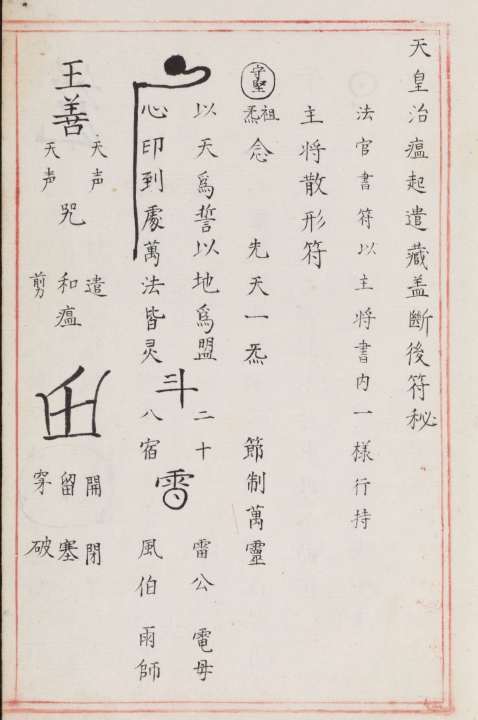 天皇治瘟起遣藏盖斷後符秘
法官書符以主將書内一樣行持
主將散形符
守堅 祖炁念 先天一炁 節制萬靈
以天爲誓以地爲盟 二十 雷公 電母
心印到處萬法皆灵 斗 八宿 雷 風伯 雨師
王善 天声 天声 咒 遣 和瘟 剪 開 閉 留 塞 穿 破